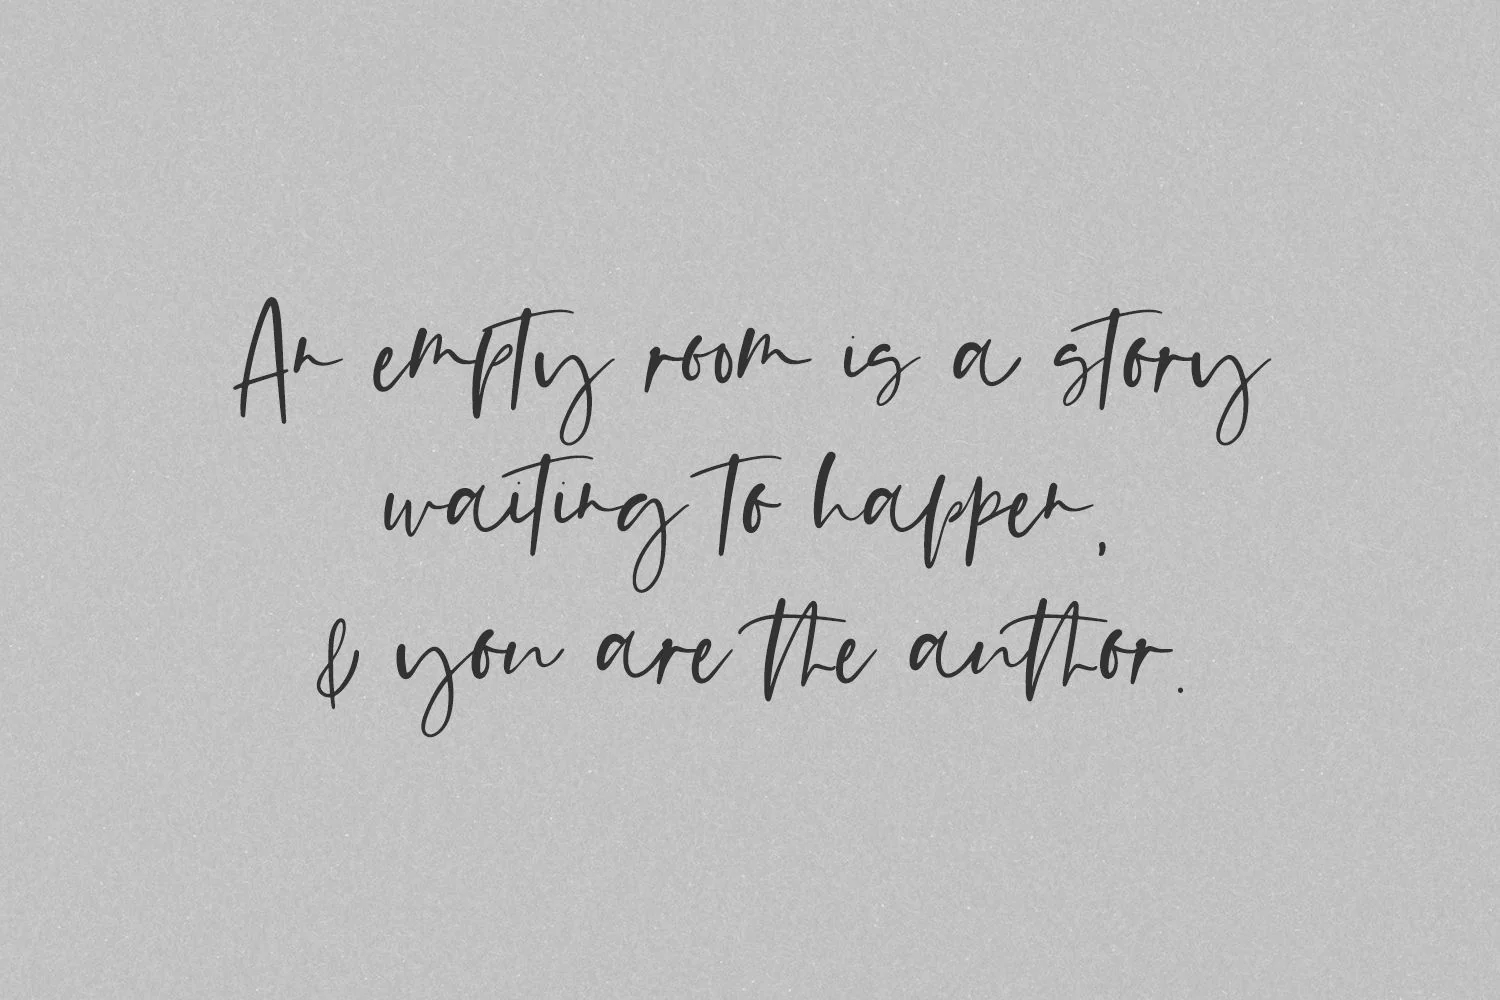 An empty room is a story
waiting to happen,
& you are the author.